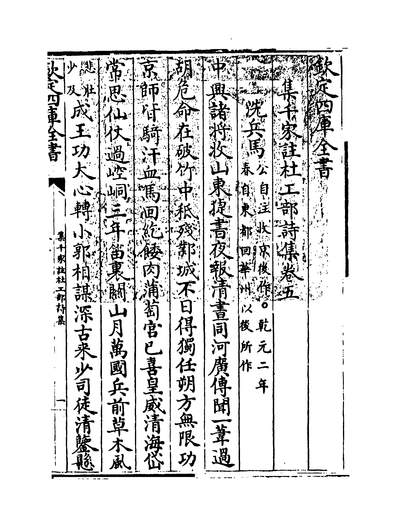 欽定四庫全書
集千家註杜工部詩集卷五
洗兵馬 公自注收京後作。乾元二年
春自東都回華州以後所作
中興諸將收山東捷書夜報清晝同河廣傳聞一葦過
胡危命在破竹中秪殘鄴城不日得獨任朔方無限功
京師皆騎汗血馬回紇餧肉蒲萄宮已喜皇威清海岱
常思仙仗過崆峒三年笛裏關山月萬國兵前草木風
悲壯
及
少
成王功大心轉小郭相謀深古來少司徒清鑒懸
欽定四庫全書
集千家註杜工部詩集
一